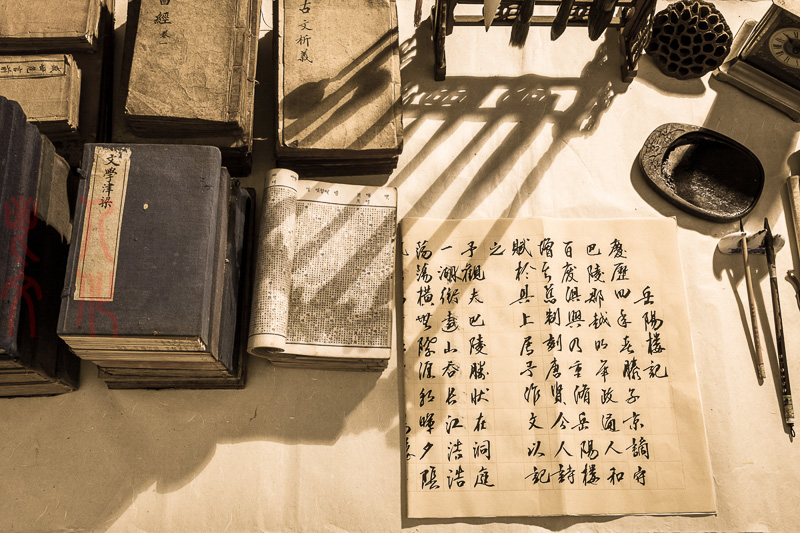 經 卷一
古文析義
文學津梁
岳陽樓記
慶歷四年春滕子京謫守
巴陵郡越明年政通人和
百廢俱興乃重脩岳陽樓
增其舊制刻唐賢今人詩
賦於其上屬予作文以記
之
予觀夫巴陵勝狀在洞庭
一湖銜遠山吞長江浩浩
湯湯橫無際涯朝暉夕陰